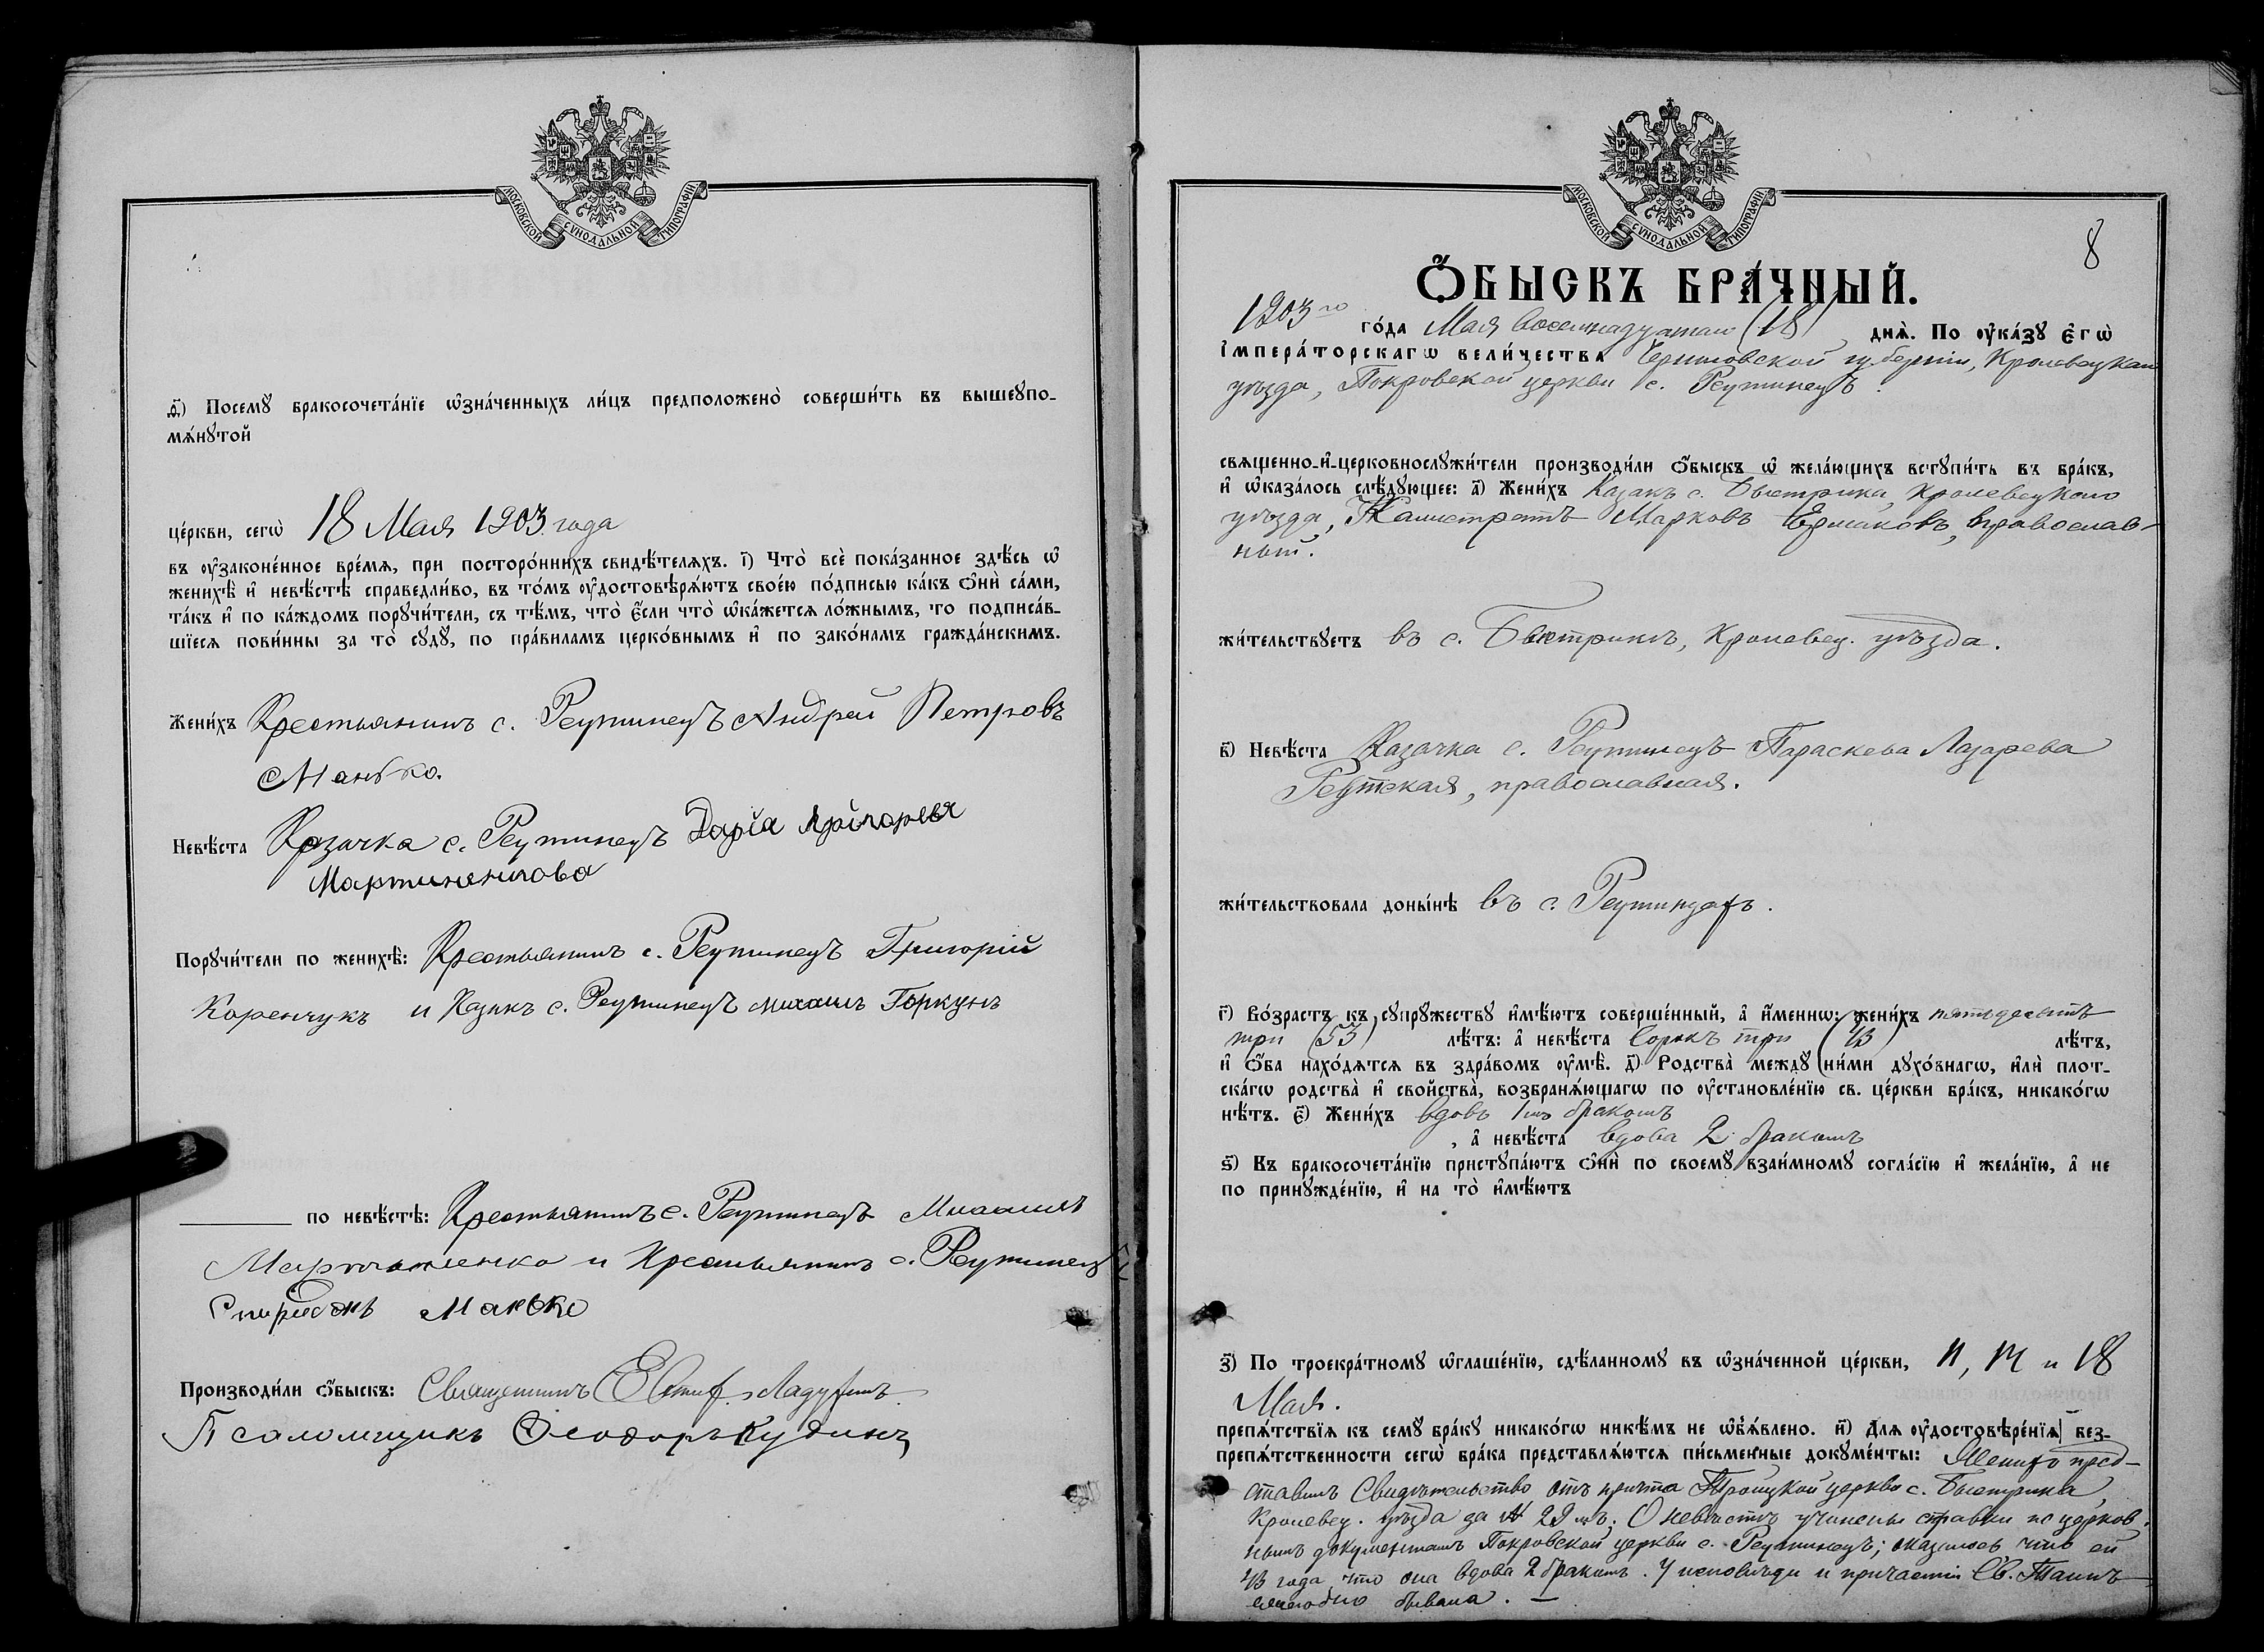 МОСКОВСКОЙ СѴНОДАЛЬНОЙ ТИПОГРАФІИ
ѳ҃) Посемꙋ бракосочета́нїе ѡ҆зна́ченныхъ ли́цъ предположено̀ соверши́ть въ вышеꙋпо-
мѧ́нꙋтой
це́ркви, сегѡ̀ 18 Мая 1903 года
въ ᲂу҆законе́нное вре́мѧ, при посторо́ннихъ свидѣ́телѧхъ. і҃) Что̀ всѐ пока́занное здѣ́сь ѡ҆
женихѣ̀ и҆ невѣ́стѣ справедли́во, въ то́мъ ᲂу҆достовѣрѧ́ютъ свое́ю по́дписью ка́къ ѻ҆нѝ са́ми,
та́къ и҆ по ка́ждомъ порꙋчи́тели, съ тѣ́мъ, что̀ є҆́сли что̀ ѡ҆ка́жетсѧ ло́жнымъ, то подписа́в-
шїесѧ пови́нны за то̀ сꙋдꙋ̀, по пра́виламъ церко́внымъ и҆ по зако́намъ гражда́нскимъ.
Жени́хъ Крестьянинъ с. Реутинецъ Андрей Петровъ
Манько.
Невѣ́ста Казачка с. Реутинецъ Дарія Григорьева
Мартиненкова
Порꙋчи́тели по женихѣ̀: Крестьянинъ с. Реутинецъ Григорій
Коренчукъ и Казакъ с. Реутинецъ Михаилъ Горкунъ
по невѣ́стѣ: Крестьянинъ с. Реутинецъ Михаилъ
и Крестьянинъ с. Реутинецъ
Спиридонъ Манько
Производи́ли ѻ҆́быскъ: Священникъ Евтиф.
Псаломщикъ Ѳеодоръ Кудинъ
МОСКОВСКОЙ СѴНОДАЛЬНОЙ ТИПОГРАФІИ
8
Ѻ҆́БЫСКЪ БРА́ЧНЫЙ.
1903 го го́да Мая восемнадцатаго (18) днѧ̀. По ᲂу҆ка́зꙋ є҆гѡ̀
і҆мпера́торскагѡ вели́чества Черниговской губерніи, Кролевецкаго
уѣзда, Покровской церкви с. Реутинецъ.
свѧщенно-и҆-церковнослꙋжи́тели производи́ли ѻ҆́быскъ ѡ҆ жела́ющихъ встꙋпи́ть въ бра́къ,
и҆ ѡ҆каза́лось слѣ́дꙋющее: а҃) Жени́хъ Казакъ с. Быстрика, Кролевецкаго
уѣзда, Калистратъ Марковъ Ермаковъ, православ-
ный.
жи́тельствꙋетъ въ с. Быстрикѣ, Кролевец. уѣзда.
в҃) Невѣ́ста Казачка с. Реутинецъ Параскева Лазарева
Реутская, православная.
жи́тельствовала доны́нѣ въ с. Реутинцахъ.
г҃) Во́зрастъ къ сꙋпрꙋ́жествꙋ и҆мѣ́ютъ соверше́нный, а҆ и҆́меннѡ: жени́хъ пятьдесятъ
три (53) лѣ́тъ: а҆ невѣ́ста сорокъ три (43) лѣ́тъ,
и҆ ѻ҆́ба нахо́дѧтсѧ въ здра́вомъ ᲂу҆мѣ̀. д҃) Родства̀ междꙋ̀ ни́ми дꙋхо́внагѡ, и҆лѝ плот-
ска́гѡ родства̀ и҆ свойства̀, возбранѧ́ющагѡ по ᲂу҆становле́нїю св. це́ркви бра́къ, никако́гѡ
нѣ́тъ. є҃) Жени́хъ вдовъ 1мъ бракомъ
, а҆ невѣ́ста вдова 2 бракомъ
ѕ҃) Къ бракосочета́нїю пристꙋпа́ютъ ѻ҆нѝ по своемꙋ̀ взаи́мномꙋ согла́сїю и҆ жела́нїю, а҆ не
по принꙋжде́нїю, и҆ на то̀ и҆мѣ́ютъ
з҃) По троекра́тномꙋ ѡ҆глаше́нїю, сдѣ́ланномꙋ въ ѡ҆зна́ченной це́ркви, 11, 14 и 18
Мая.
препѧ́тствїѧ къ семꙋ̀ бра́кꙋ никако́гѡ никѣ́мъ не ѡ҆б̾ѧ́влено. и҃) Для ᲂу҆достовѣре́нїѧ без-
препѧ́тственности сегѡ̀ бра́ка представлѧ́ютсѧ пи́сьменные докꙋме́нты: Женихъ пред-
ставилъ Свидѣтельство отъ причта Троицкой церкви с. Быстрика,
Кролевец. уѣзда за № 29мъ; О невѣстѣ учинены справки по церков-
нымъ документамъ Покровской церкви с. Реутинецъ; оказалось что ей
43 года, что она вдова 2 бракомъ. У исповѣди и причастіи Св. Таинъ
ежегодно бывала. —